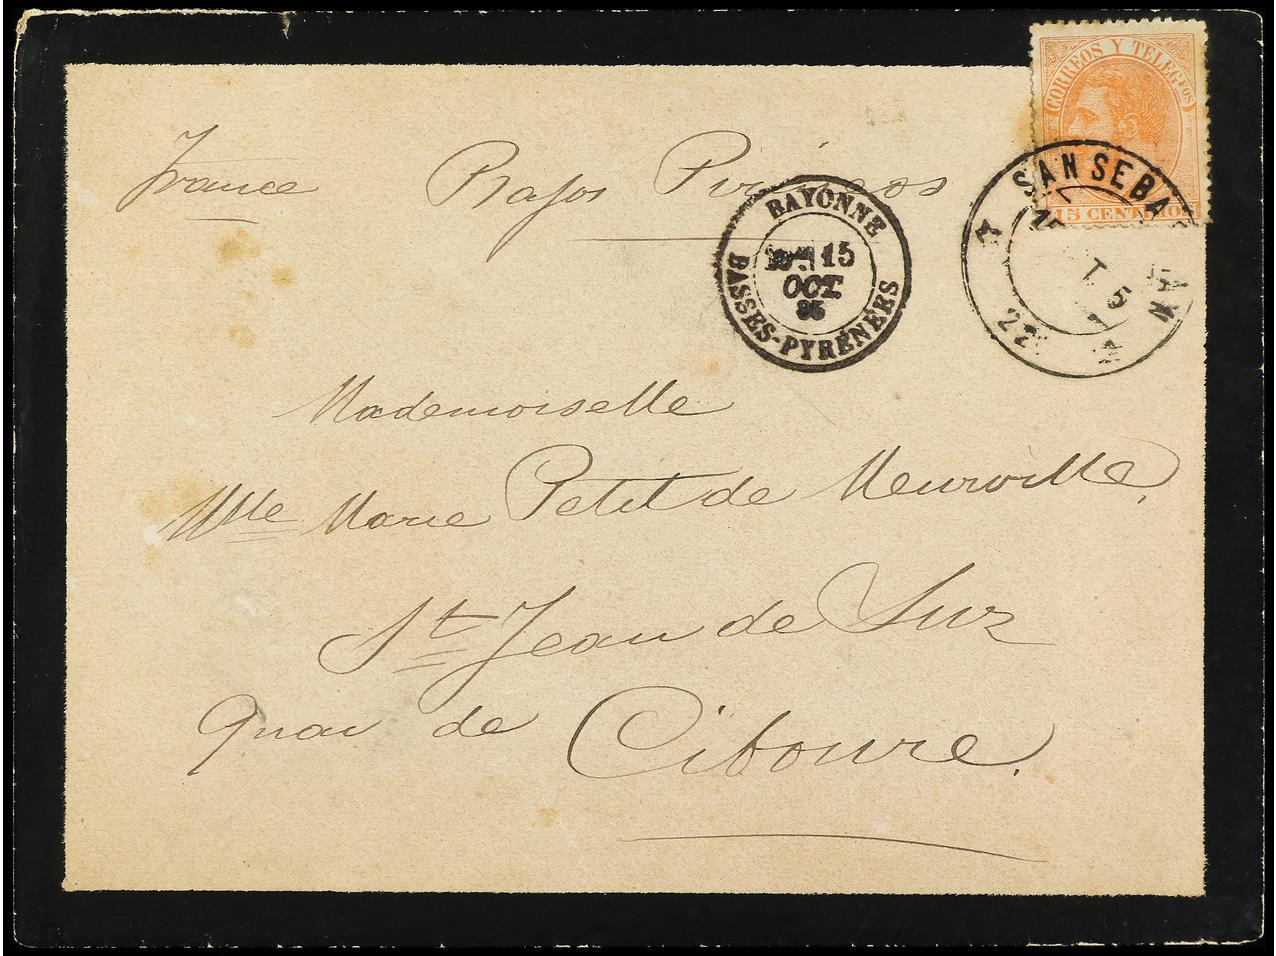 CORREOS Y TELEGFOS
15 CENTIMOS
SAN SEBA
22
France Bajos Pirineos
BAYONNE
15
OCT
85
BASSES-PYRÉNÉES
Mademoiselle
Mlle Marie Petit de Meurville,
St Jean de Luz
Quai de Ciboure.